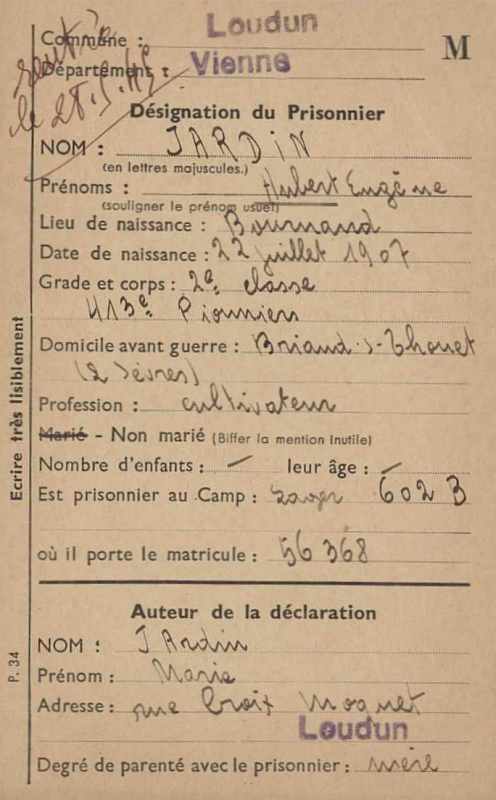 Commune : Loudun
M
Département : Vienne
le 28.5.45
Désignation du Prisonnier
NOM : JARDIN
(en lettres majuscules.)
Prénoms : Hubert Eugène
(souligner le prénom usuel)
Lieu de naissance : Bournand
Date de naissance : 22 juillet 1907
Grade et corps : 2e classe
413e Pionniers
Domicile avant guerre : Briand-s-Thouet
(2 Sèvres)
Profession : cultivateur
Marié - Non marié (Biffer la mention inutile)
Nombre d'enfants : — leur âge : —
Est prisonnier au Camp : 602 B
où il porte le matricule : 56 368
Auteur de la déclaration
NOM : JArdin
Prénom : Marie
Adresse : rue Croix Moquet
Loudun
Degré de parenté avec le prisonnier : mère
Ecrire très lisiblement
P. 34